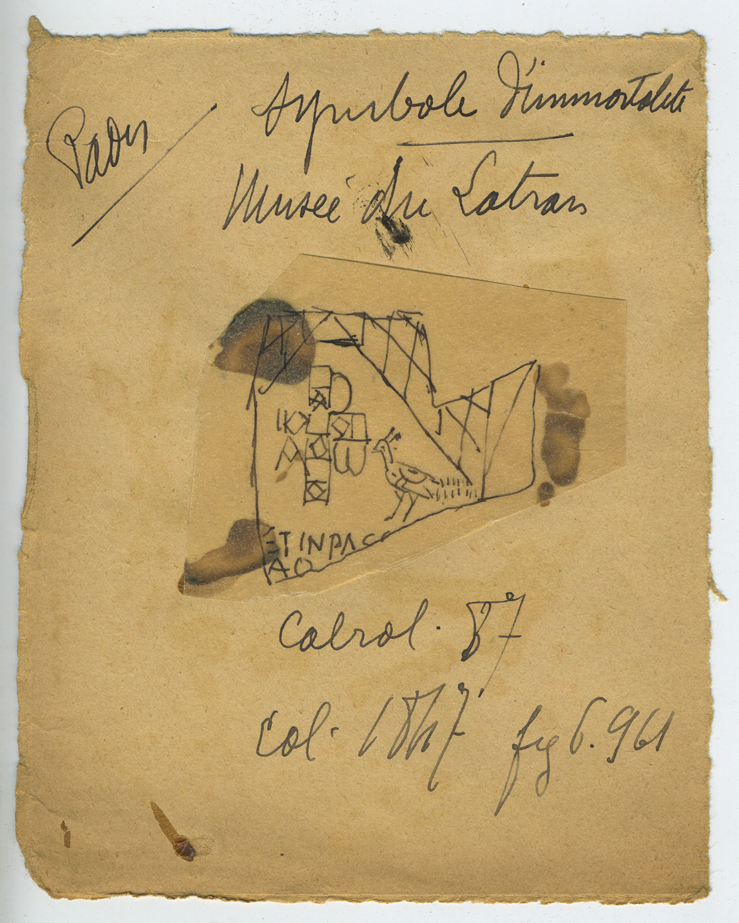 Paon
Symbole d'immortalité
Musée du Latran
ETINPAC
Cabrol. 87
Col. 1847 fig 6.961